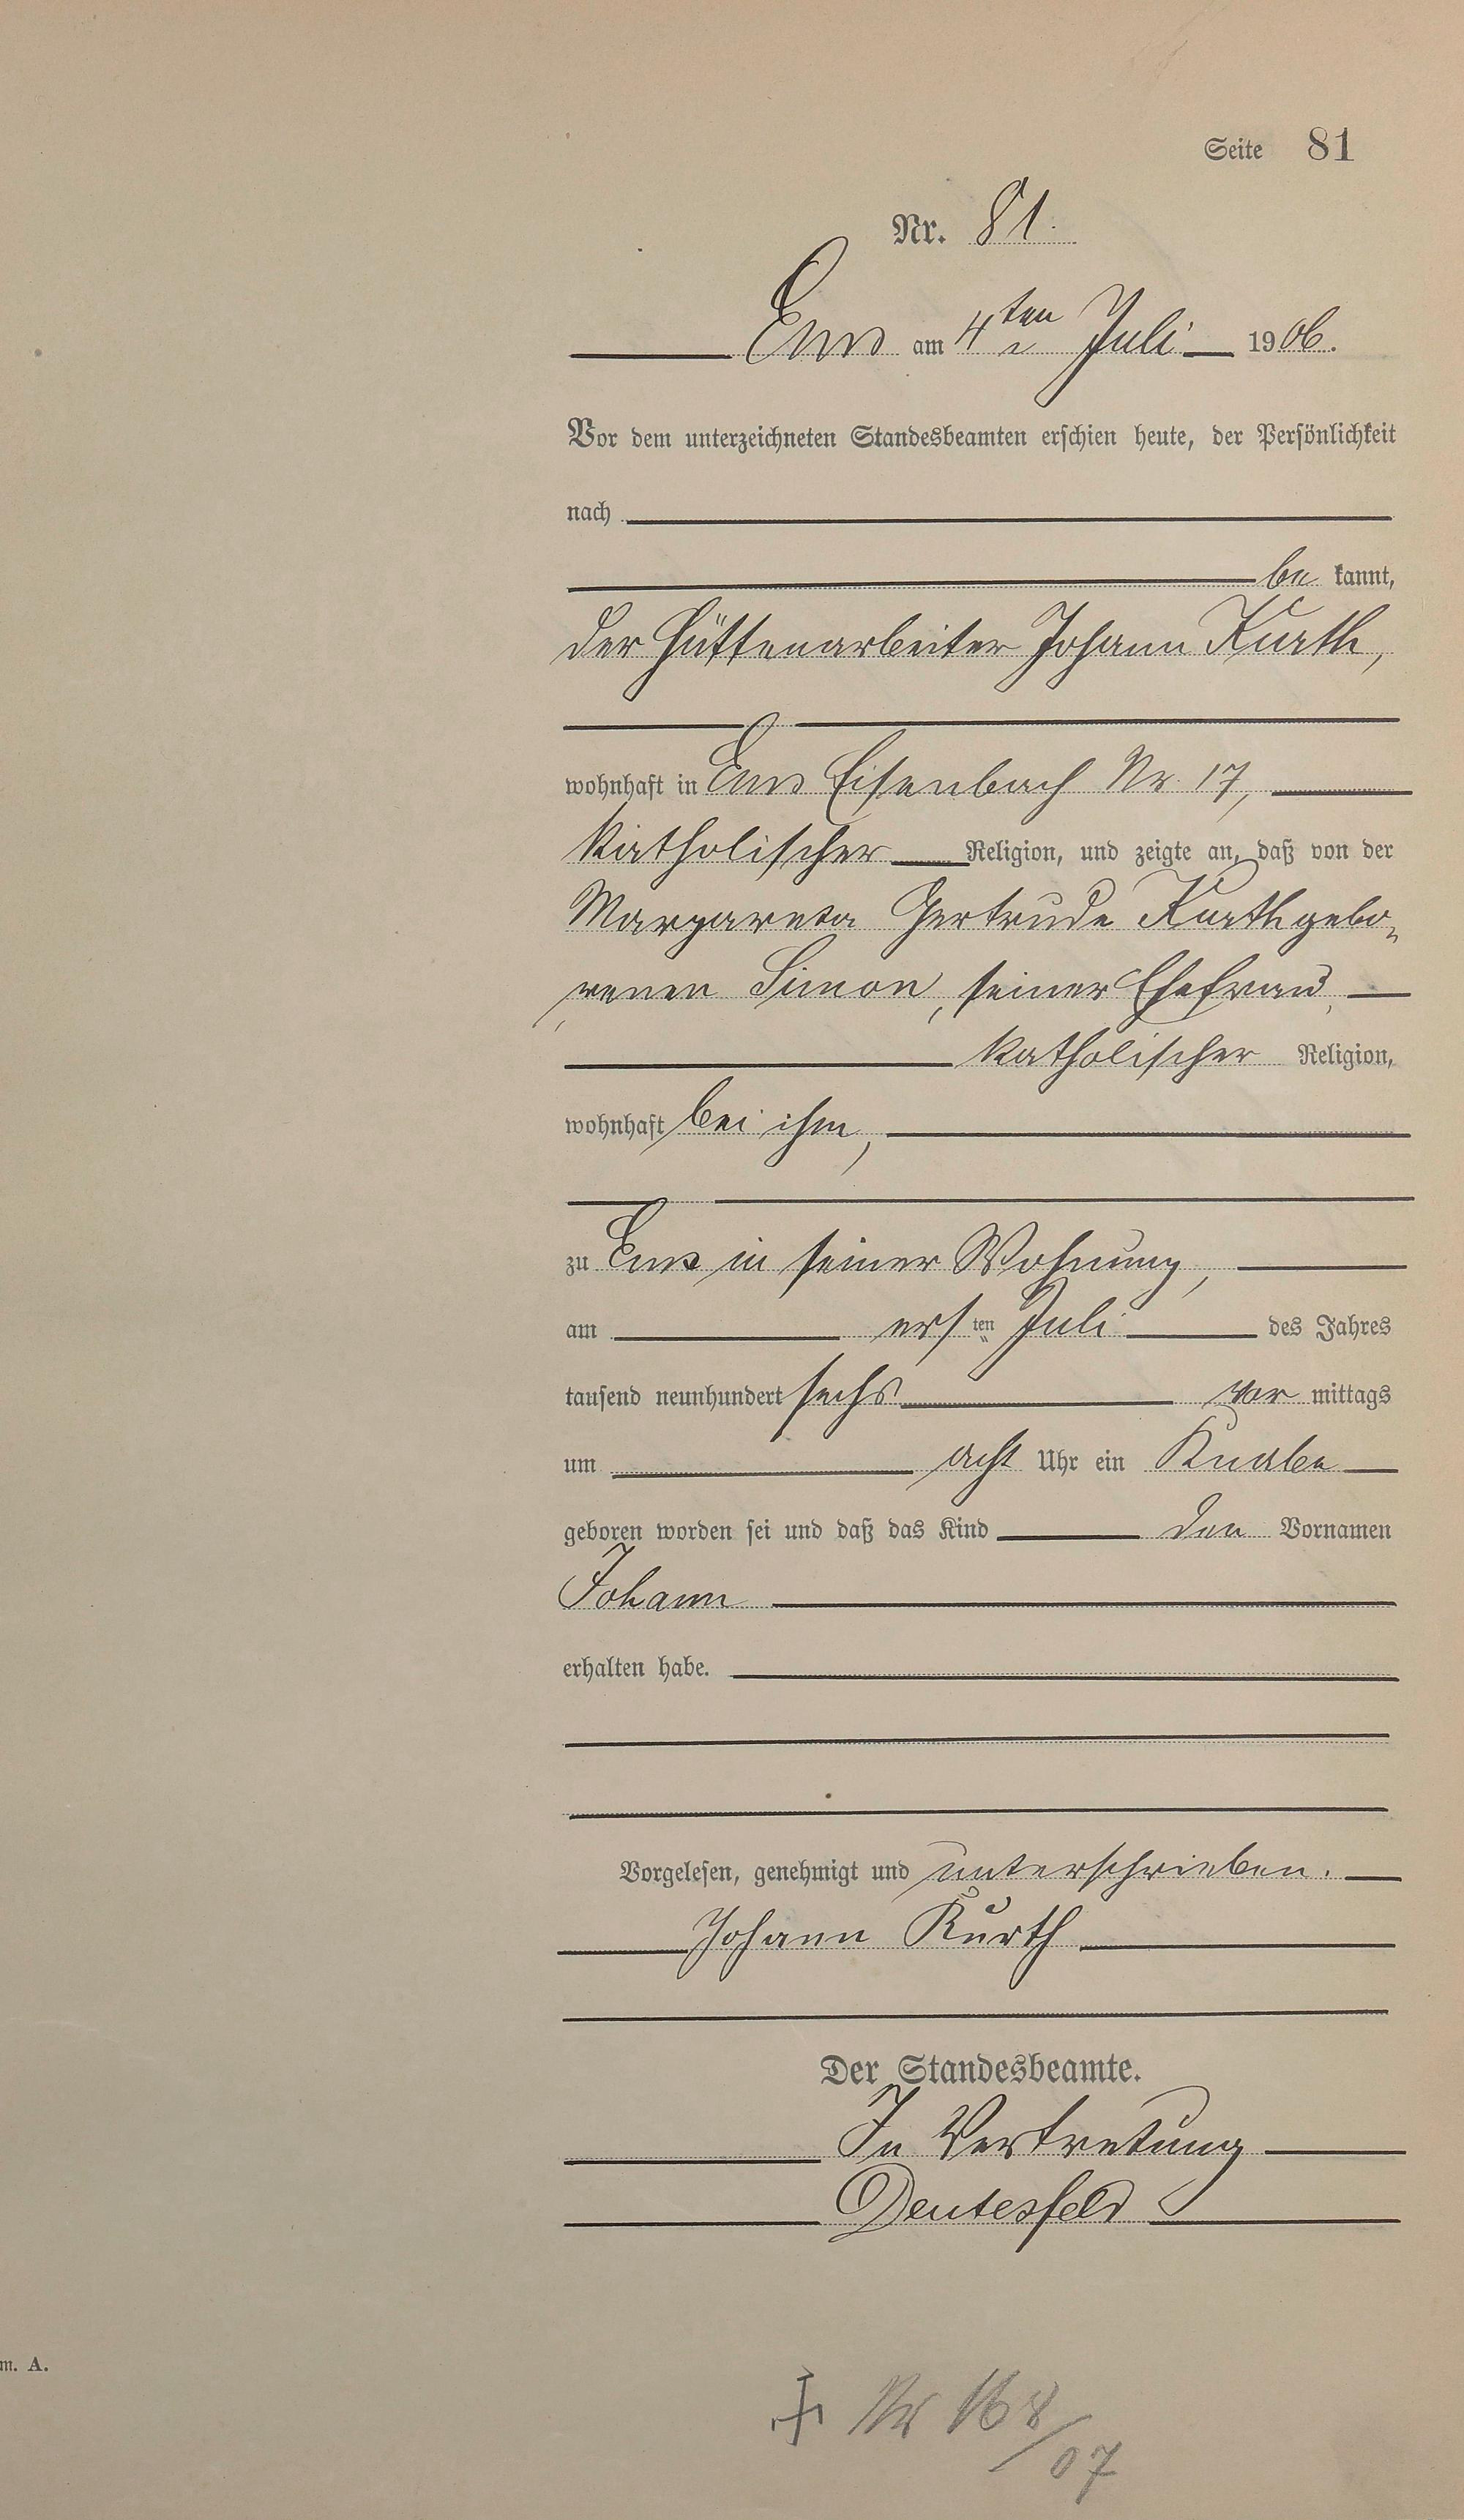 Seite 81
Nr. 81.
Ems am 4ten Juli 1906.
Vor dem unterzeichneten Standesbeamten erschien heute, der Persönlichkeit
nach
be kannt,
der Hüttenarbeiter Johann Kurth,
wohnhaft in Ems Eisenbach Nr. 17,
katholischer Religion, und zeigte an, daß von der
Margareta Gertrude Kurth gebo„
renen Simon, seiner Ehefrau,
katholischer Religion,
wohnhaft bei ihm,
zu Ems in seiner Wohnung,
am ersten Juli des Jahres
tausend neunhundert sechs vor mittags
um acht Uhr ein Knabe
geboren worden sei und daß das Kind den Vornamen
Johann
erhalten habe.
Vorgelesen, genehmigt und unterschrieben.
Johann Kurth
Der Standesbeamte.
In Vertretung
Deutesfeld
m. A.
Nr 168/07